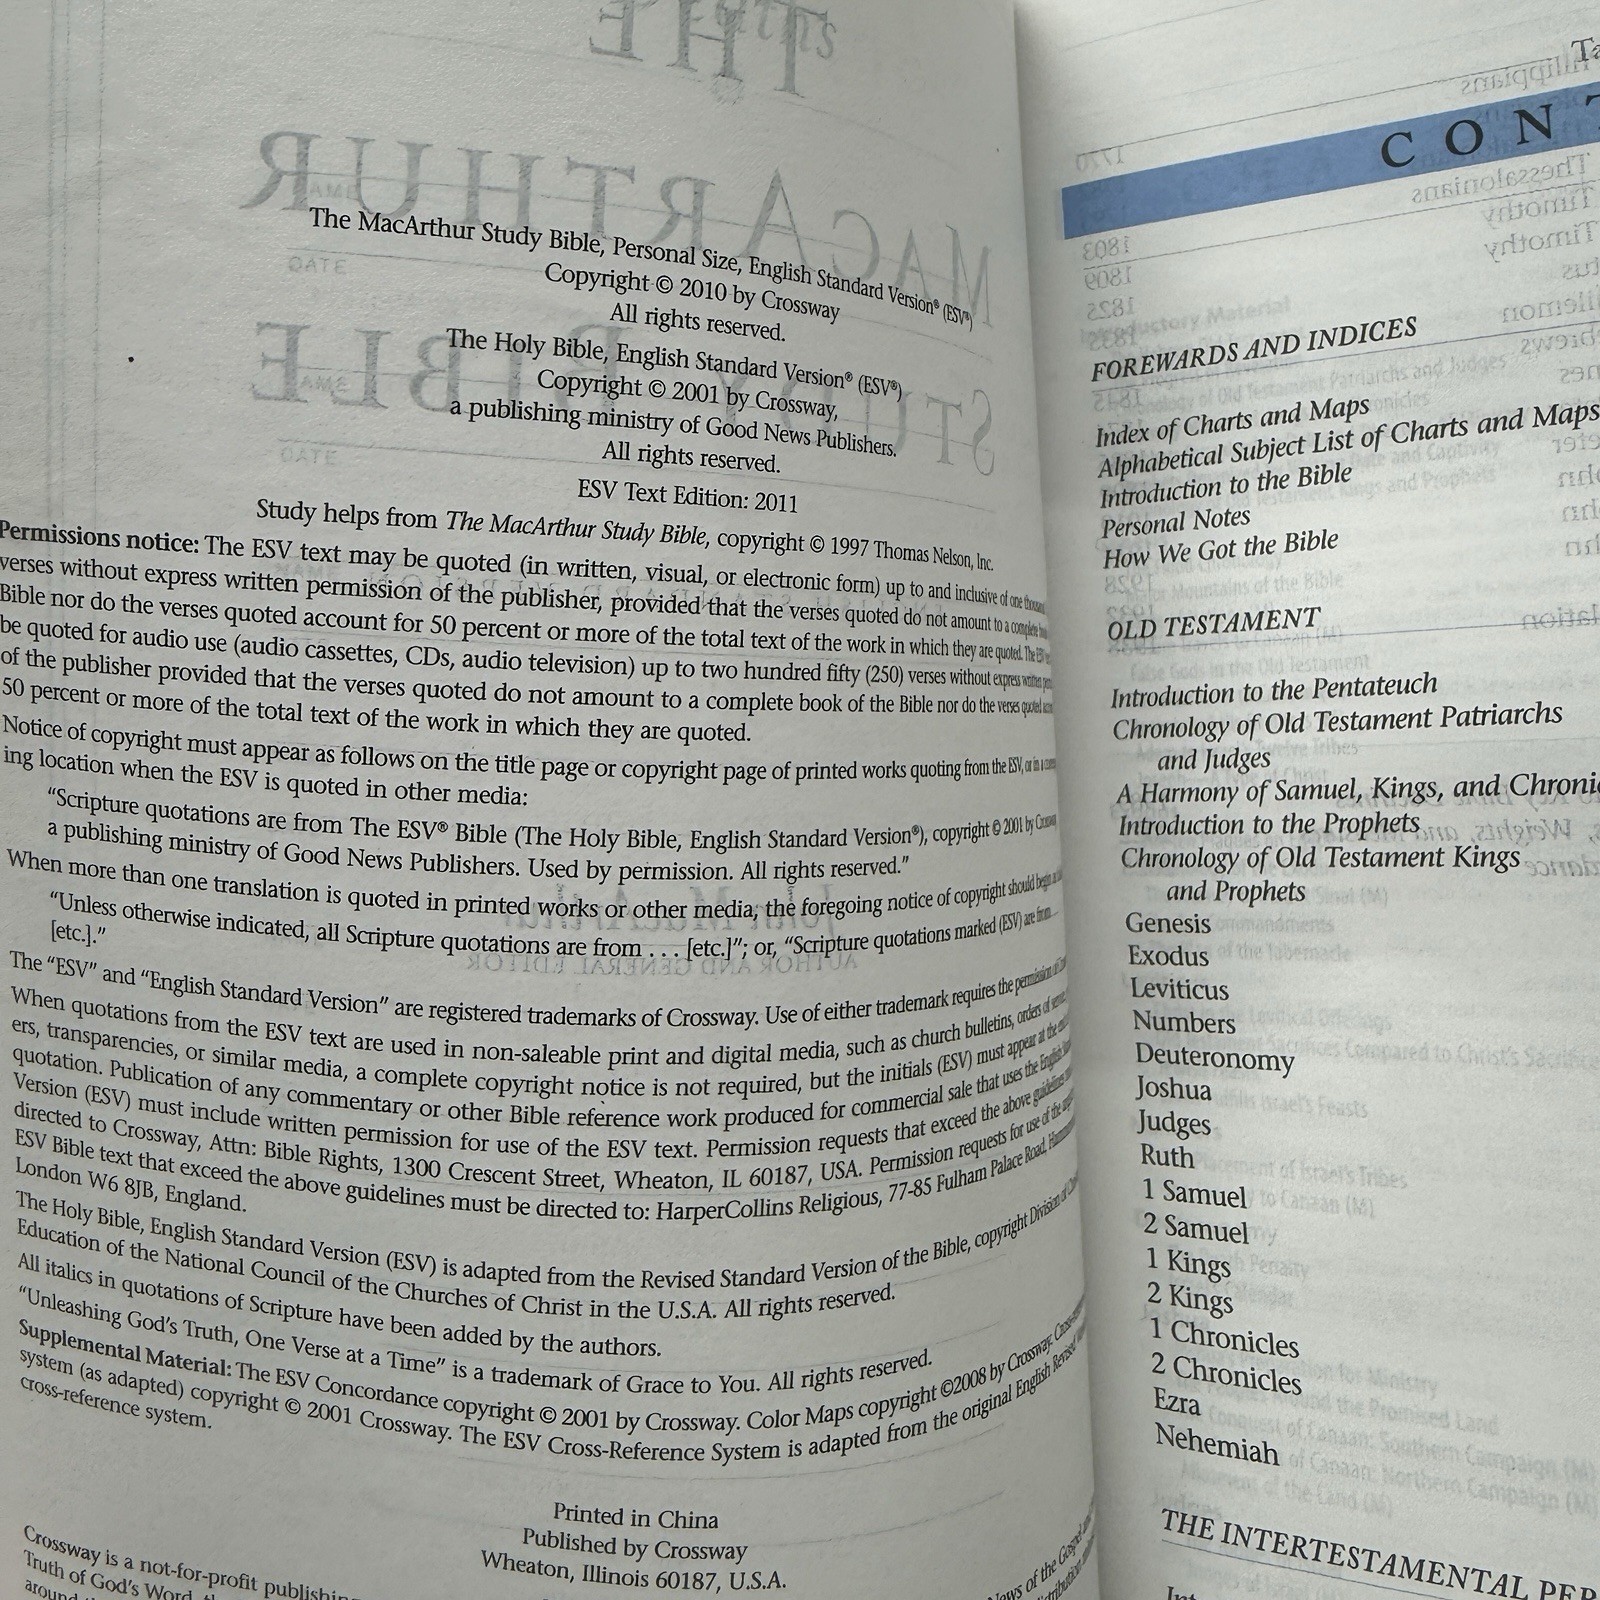 The MacArthur Study Bible, Personal Size, English Standard Version® (ESV®)
Copyright © 2010 by Crossway
All rights reserved.
The Holy Bible, English Standard Version® (ESV®)
Copyright © 2001 by Crossway,
a publishing ministry of Good News Publishers.
All rights reserved.
ESV Text Edition: 2011
Study helps from The MacArthur Study Bible, copyright © 1997 Thomas Nelson, Inc.
Permissions notice: The ESV text may be quoted (in written, visual, or electronic form) up to and inclusive of one
verses without express written permission of the publisher, provided that the verses quoted do not amount to a complete
Bible nor do the verses quoted account for 50 percent or more of the total text of the work in which they are quoted. The
be quoted for audio use (audio cassettes, CDs, audio television) up to two hundred fifty (250) verses without express written
of the publisher provided that the verses quoted do not amount to a complete book of the Bible nor do the verses quoted
50 percent or more of the total text of the work in which they are quoted.
Notice of copyright must appear as follows on the title page or copyright page of printed works quoting from the ESV, or in a
ing location when the ESV is quoted in other media:
“Scripture quotations are from The ESV® Bible (The Holy Bible, English Standard Version®), copyright © 2001 by
a publishing ministry of Good News Publishers. Used by permission. All rights reserved.”
When more than one translation is quoted in printed works or other media, the foregoing notice of copyright should begin
“Unless otherwise indicated, all Scripture quotations are from . . . [etc.]”; or, “Scripture quotations marked (ESV) are from...
[etc.].”
The “ESV” and “English Standard Version” are registered trademarks of Crossway. Use of either trademark requires the permission of
When quotations from the ESV text are used in non-saleable print and digital media, such as church bulletins, orders of
ers, transparencies, or similar media, a complete copyright notice is not required, but the initials (ESV) must appear at the
quotation. Publication of any commentary or other Bible reference work produced for commercial sale that uses the English
Version (ESV) must include written permission for use of the ESV text. Permission requests that exceed the above guidelines
directed to Crossway, Attn: Bible Rights, 1300 Crescent Street, Wheaton, IL 60187, USA. Permission requests for use of the
ESV Bible text that exceed the above guidelines must be directed to: HarperCollins Religious, 77-85 Fulham Palace Road,
London W6 8JB, England.
The Holy Bible, English Standard Version (ESV) is adapted from the Revised Standard Version of the Bible, copyright Division of
Education of the National Council of the Churches of Christ in the U.S.A. All rights reserved.
All italics in quotations of Scripture have been added by the authors.
“Unleashing God’s Truth, One Verse at a Time” is a trademark of Grace to You. All rights reserved.
Supplemental Material: The ESV Concordance copyright © 2001 by Crossway. Color Maps copyright ©2008 by Crossway.
system (as adapted) copyright © 2001 Crossway. The ESV Cross-Reference System is adapted from the original English Revised
cross-reference system.
Printed in China
Published by Crossway
Wheaton, Illinois 60187, U.S.A.
Crossway is a not-for-profit
Truth of God’s Word, News of the Gospel
around
CONT
FOREWARDS AND INDICES
Index of Charts and Maps
Alphabetical Subject List of Charts and Maps
Introduction to the Bible
Personal Notes
How We Got the Bible
OLD TESTAMENT
Introduction to the Pentateuch
Chronology of Old Testament Patriarchs
and Judges
A Harmony of Samuel, Kings, and Chronic
Introduction to the Prophets
Chronology of Old Testament Kings
and Prophets
Genesis
Exodus
Leviticus
Numbers
Deuteronomy
Joshua
Judges
Ruth
1 Samuel
2 Samuel
1 Kings
2 Kings
1 Chronicles
2 Chronicles
Ezra
Nehemiah
THE INTERTESTAMENTAL PER